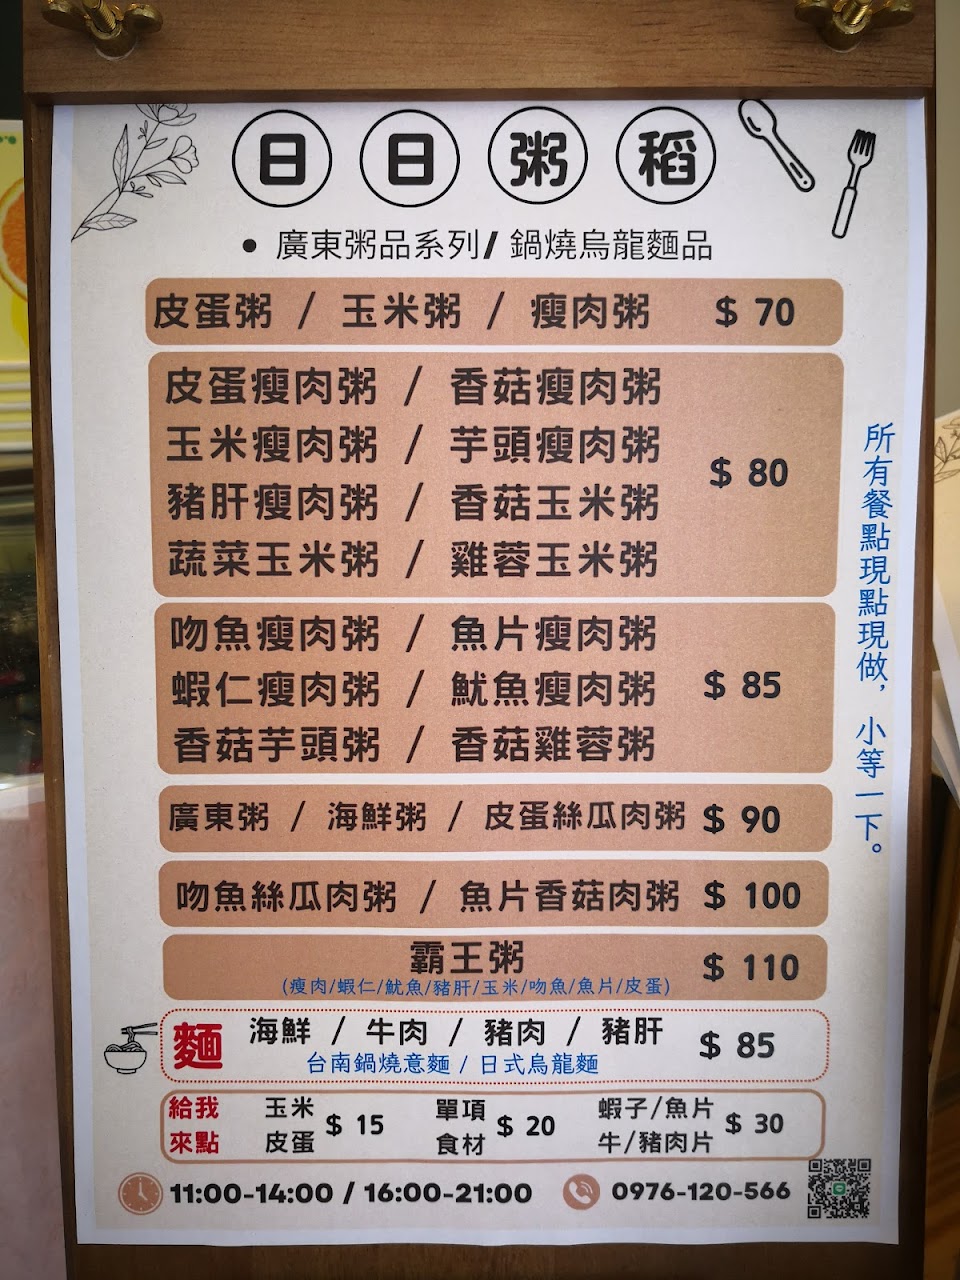 日日粥稻
• 廣東粥品系列/ 鍋燒烏龍麵品
皮蛋粥 / 玉米粥 / 瘦肉粥 $ 70
皮蛋瘦肉粥 / 香菇瘦肉粥
玉米瘦肉粥 / 芋頭瘦肉粥
豬肝瘦肉粥 / 香菇玉米粥
蔬菜玉米粥 / 雞蓉玉米粥
$ 80
吻魚瘦肉粥 / 魚片瘦肉粥
蝦仁瘦肉粥 / 魷魚瘦肉粥
香菇芋頭粥 / 香菇雞蓉粥
$ 85
廣東粥 / 海鮮粥 / 皮蛋絲瓜肉粥 $ 90
吻魚絲瓜肉粥 / 魚片香菇肉粥 $ 100
霸王粥
(瘦肉/蝦仁/魷魚/豬肝/玉米/吻魚/魚片/皮蛋)
$ 110
麵
海鮮 / 牛肉 / 豬肉 / 豬肝
台南鍋燒意麵 / 日式烏龍麵
$ 85
給我
來點
玉米
皮蛋
$ 15
單項
食材
$ 20
蝦子/魚片
牛/豬肉片
$ 30
11:00-14:00 / 16:00-21:00
0976-120-566
所有餐點現點現做，小等一下。